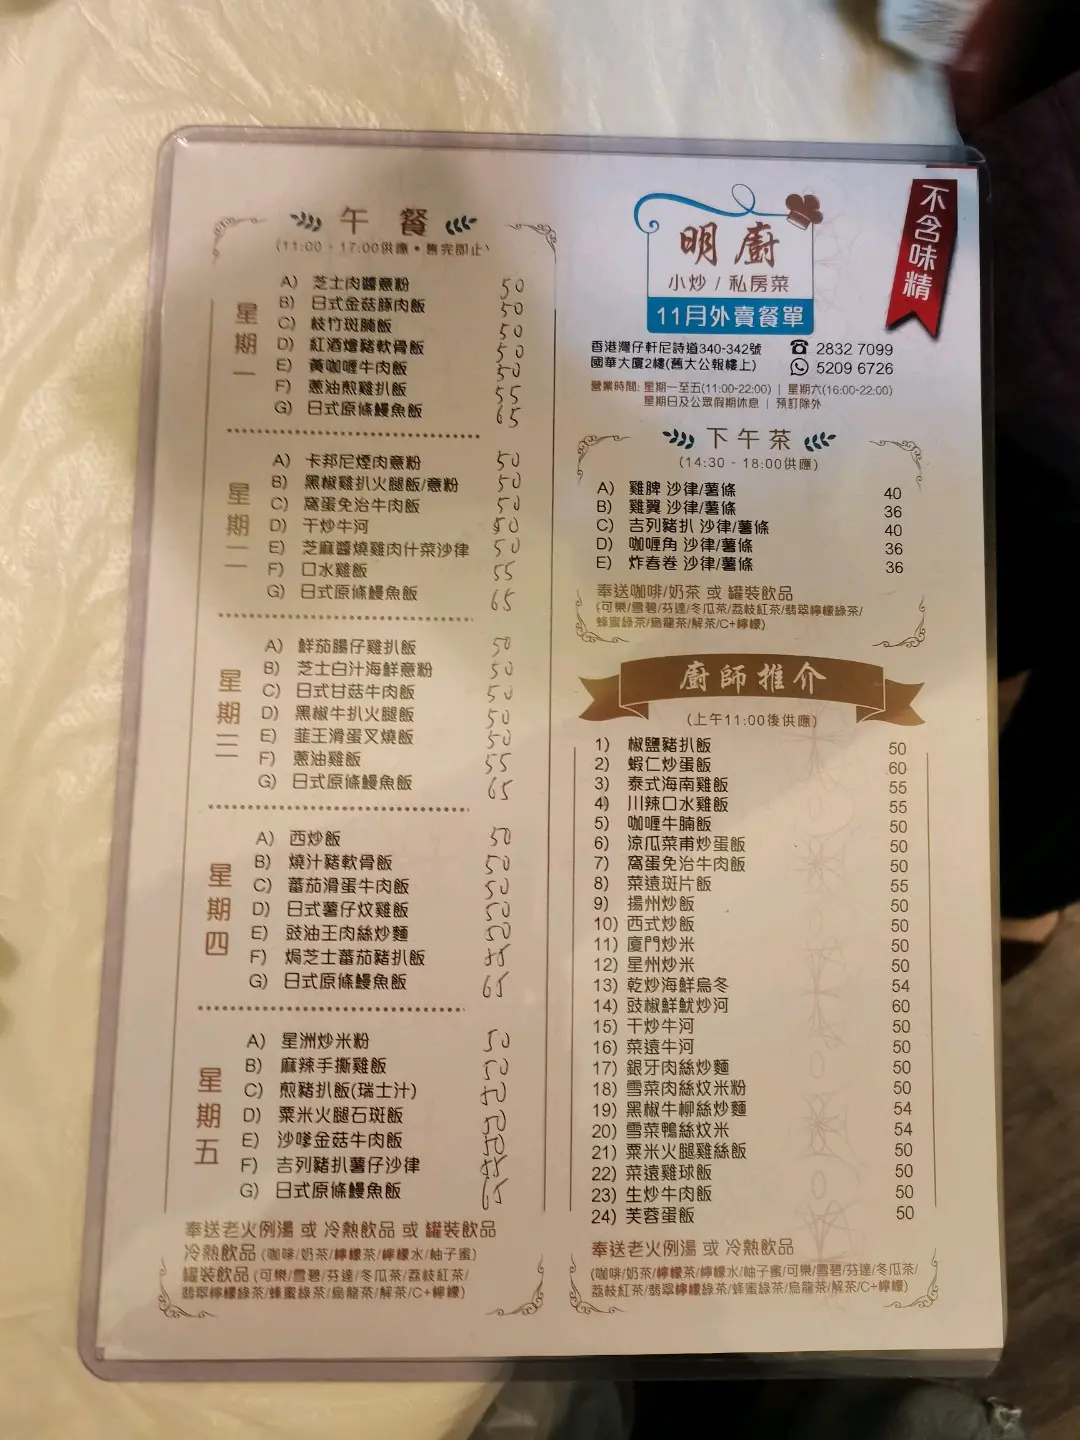 午餐
(11:00 - 17:00供應 • 售完即止)
星期一
A) 芝士肉醬意粉 50
B) 日式金菇豚肉飯 50
C) 枝竹斑腩飯 50
D) 紅酒燴豬軟骨飯 50
E) 黃咖喱牛肉飯 50
F) 蔥油煎雞扒飯 55
G) 日式原條鰻魚飯 65
星期二
A) 卡邦尼煙肉意粉 50
B) 黑椒雞扒火腿飯/意粉 50
C) 窩蛋免治牛肉飯 50
D) 干炒牛河 50
E) 芝麻醬燒雞肉什菜沙律 50
F) 口水雞飯 55
G) 日式原條鰻魚飯 65
星期三
A) 鮮茄腸仔雞扒飯 50
B) 芝士白汁海鮮意粉 50
C) 日式甘菇牛肉飯 50
D) 黑椒牛扒火腿飯 50
E) 韮王滑蛋叉燒飯 50
F) 蔥油雞飯 55
G) 日式原條鰻魚飯 65
星期四
A) 西炒飯 50
B) 燒汁豬軟骨飯 50
C) 蕃茄滑蛋牛肉飯 50
D) 日式薯仔炆雞飯 50
E) 豉油王肉絲炒麵 50
F) 焗芝士蕃茄豬扒飯 55
G) 日式原條鰻魚飯 65
星期五
A) 星洲炒米粉 50
B) 麻辣手撕雞飯 50
C) 煎豬扒飯(瑞士汁) 50
D) 粟米火腿石斑飯 50
E) 沙嗲金菇牛肉飯 50
F) 吉列豬扒薯仔沙律 55
G) 日式原條鰻魚飯 65
奉送老火例湯 或 冷熱飲品 或 罐裝飲品
冷熱飲品 (咖啡/奶茶/檸檬茶/檸檬水/柚子蜜)
罐裝飲品 (可樂/雪碧/芬達/冬瓜茶/荔枝紅茶/
翡翠檸檬綠茶/蜂蜜綠茶/烏龍茶/解茶/C+檸檬)
不含味精
明廚
小炒 / 私房菜
11月外賣餐單
香港灣仔軒尼詩道340-342號
國華大廈2樓(舊大公報樓上)
2832 7099
5209 6726
營業時間: 星期一至五(11:00-22:00) | 星期六(16:00-22:00)
星期日及公眾假期休息 | 預訂除外
下午茶
(14:30 - 18:00供應)
A) 雞脾 沙律/薯條 40
B) 雞翼 沙律/薯條 36
C) 吉列豬扒 沙律/薯條 40
D) 咖喱角 沙律/薯條 36
E) 炸春卷 沙律/薯條 36
奉送咖啡/奶茶 或 罐裝飲品
(可樂/雪碧/芬達/冬瓜茶/荔枝紅茶/翡翠檸檬綠茶/
蜂蜜綠茶/烏龍茶/解茶/C+檸檬)
廚師推介
(上午11:00後供應)
1) 椒鹽豬扒飯 50
2) 蝦仁炒蛋飯 60
3) 泰式海南雞飯 55
4) 川辣口水雞飯 55
5) 咖喱牛腩飯 50
6) 涼瓜菜甫炒蛋飯 50
7) 窩蛋免治牛肉飯 50
8) 菜遠斑片飯 55
9) 揚州炒飯 50
10) 西式炒飯 50
11) 廈門炒米 50
12) 星州炒米 50
13) 乾炒海鮮烏冬 54
14) 豉椒鮮魷炒河 60
15) 干炒牛河 50
16) 菜遠牛河 50
17) 銀牙肉絲炒麵 50
18) 雪菜肉絲炆米粉 50
19) 黑椒牛柳絲炒麵 54
20) 雪菜鴨絲炆米 54
21) 粟米火腿雞絲飯 50
22) 菜遠雞球飯 50
23) 生炒牛肉飯 50
24) 芙蓉蛋飯 50
奉送老火例湯 或 冷熱飲品
(咖啡/奶茶/檸檬茶/檸檬水/柚子蜜/可樂/雪碧/芬達/冬瓜茶/
荔枝紅茶/翡翠檸檬綠茶/蜂蜜綠茶/烏龍茶/解茶/C+檸檬)